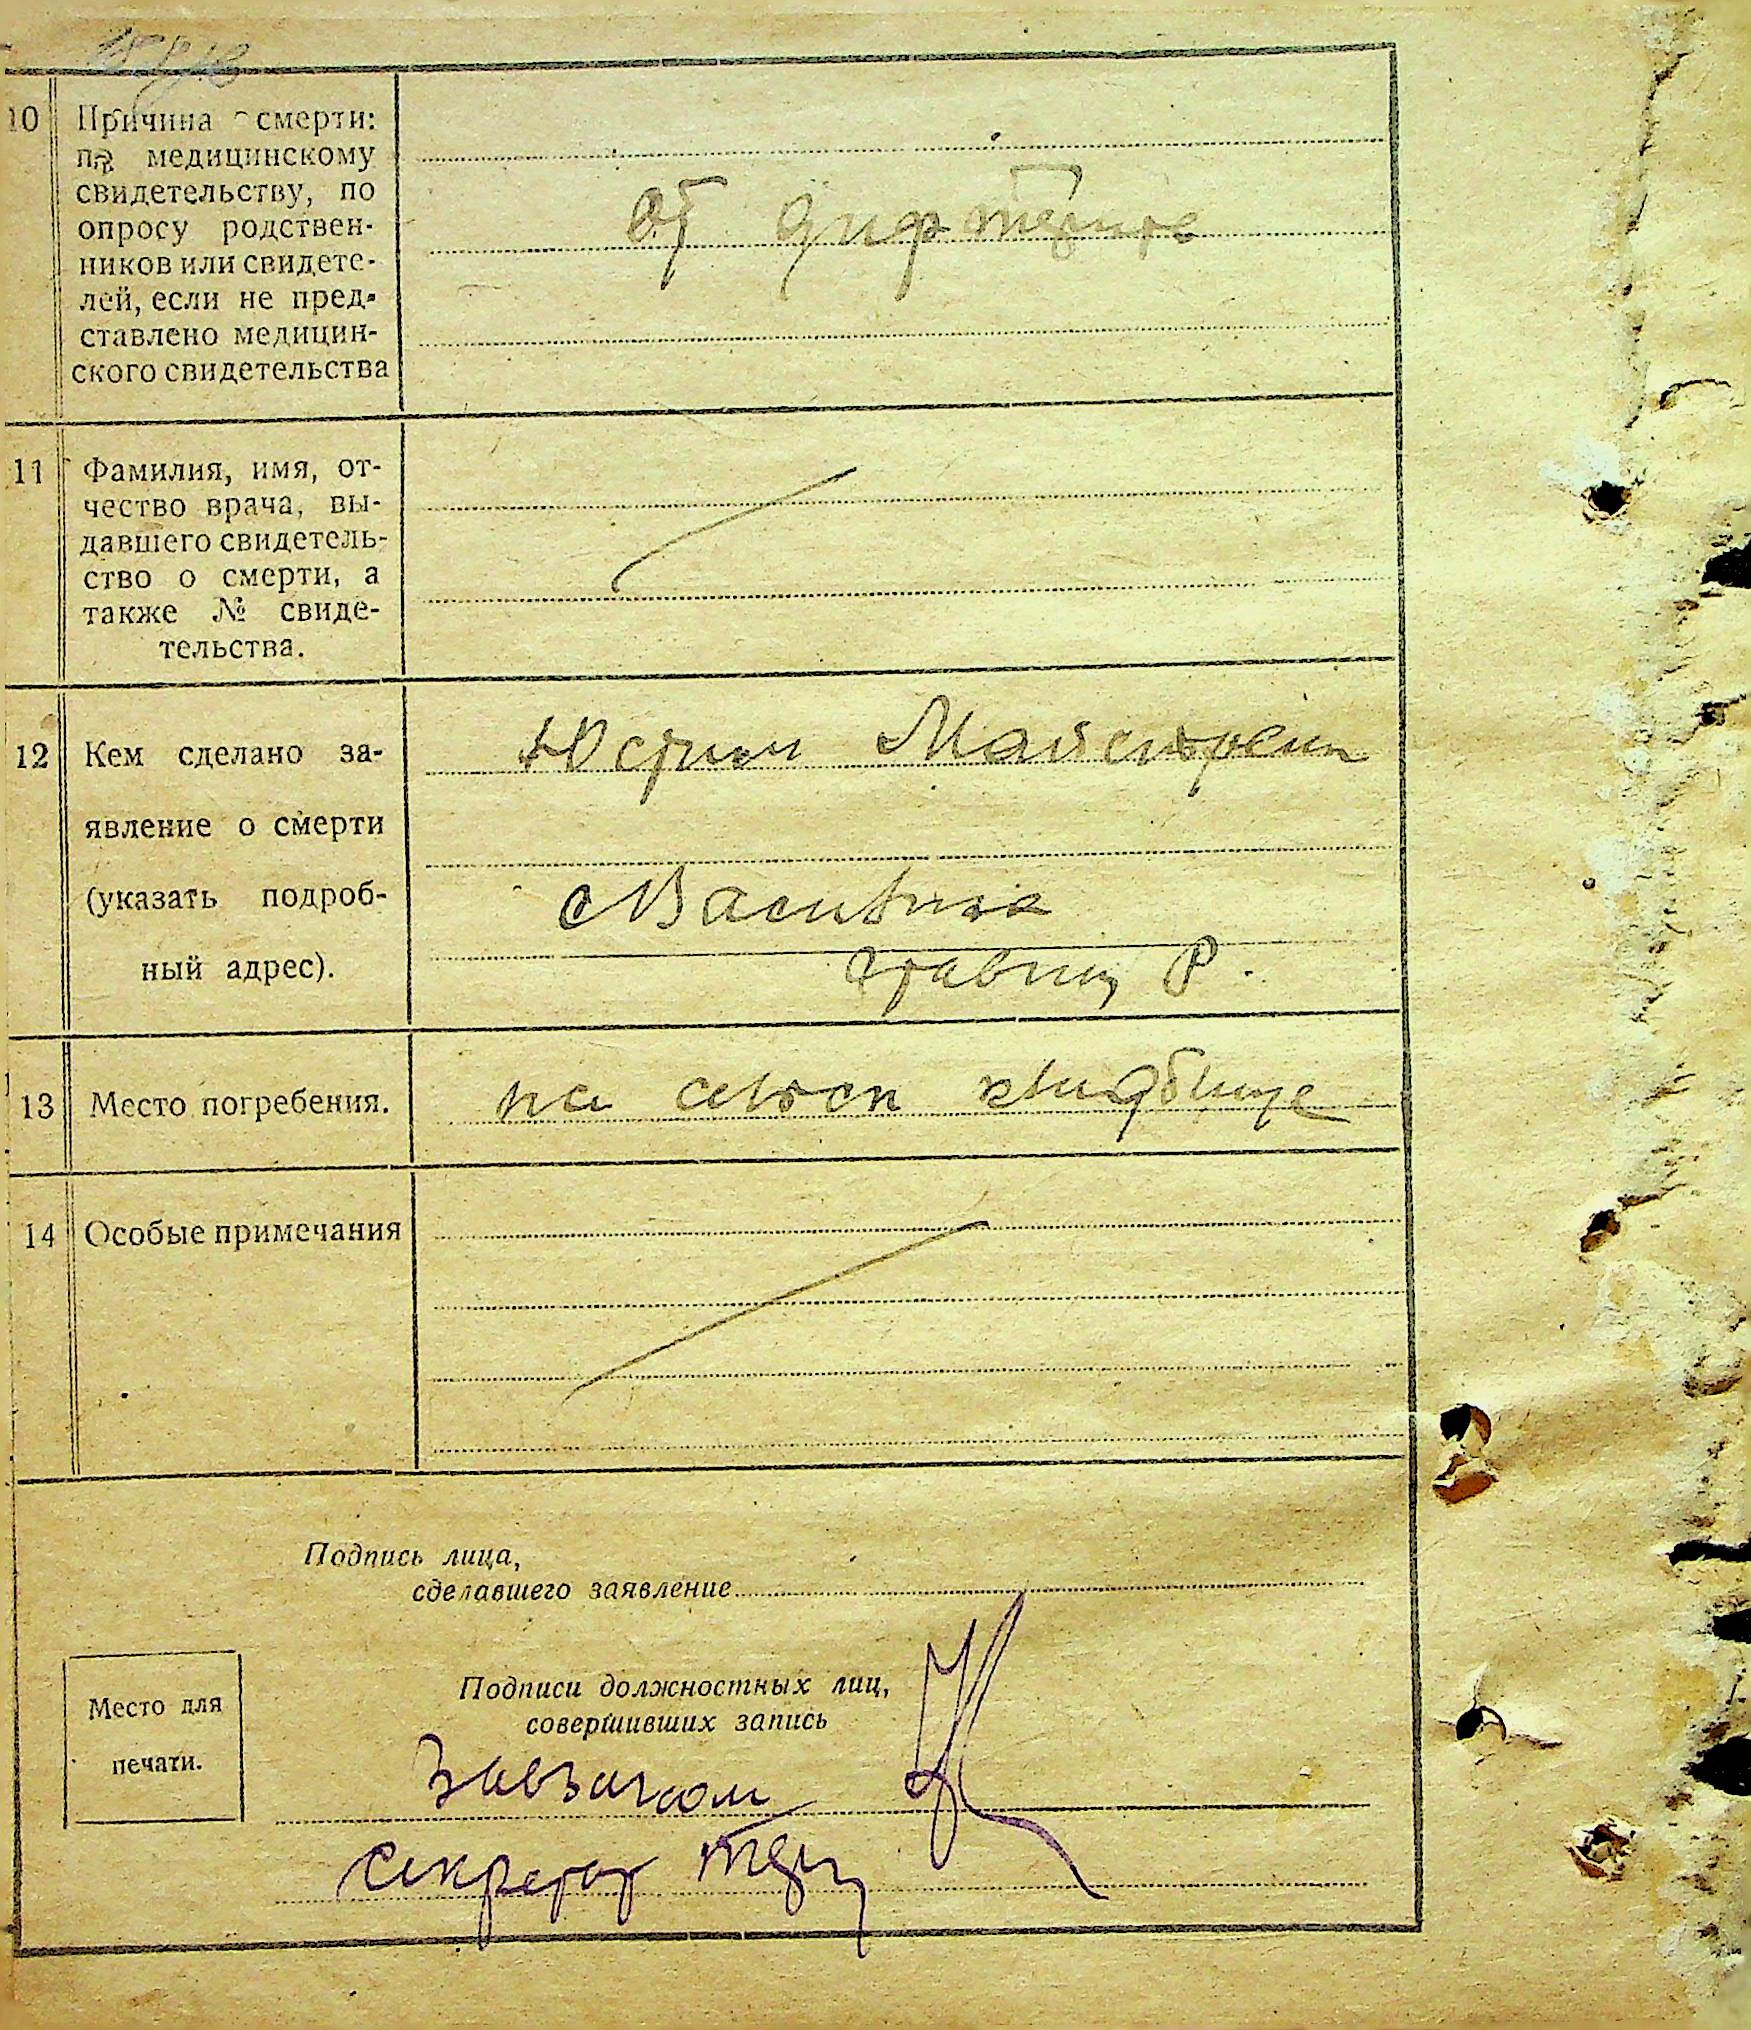 10 Причина смерти:
по медицинскому
свидетельству, по
опросу родствен-
ников или свидете-
лей, если не пред-
ставлено медицин-
ского свидетельства
от дифтерита
11 Фамилия, имя, от-
чество врача, вы-
давшего свидетель-
ство о смерти, а
также № свиде-
тельства.
12 Кем сделано за-
явление о смерти
(указать подроб-
ный адрес).
Юстин
с
Р.
13 Место погребения.
на сельск кладбище
14 Особые примечания
Подпись лица,
сделавшего заявление
Место для
печати.
Подписи должностных лиц,
совершивших запись
Завзагсом
секретар